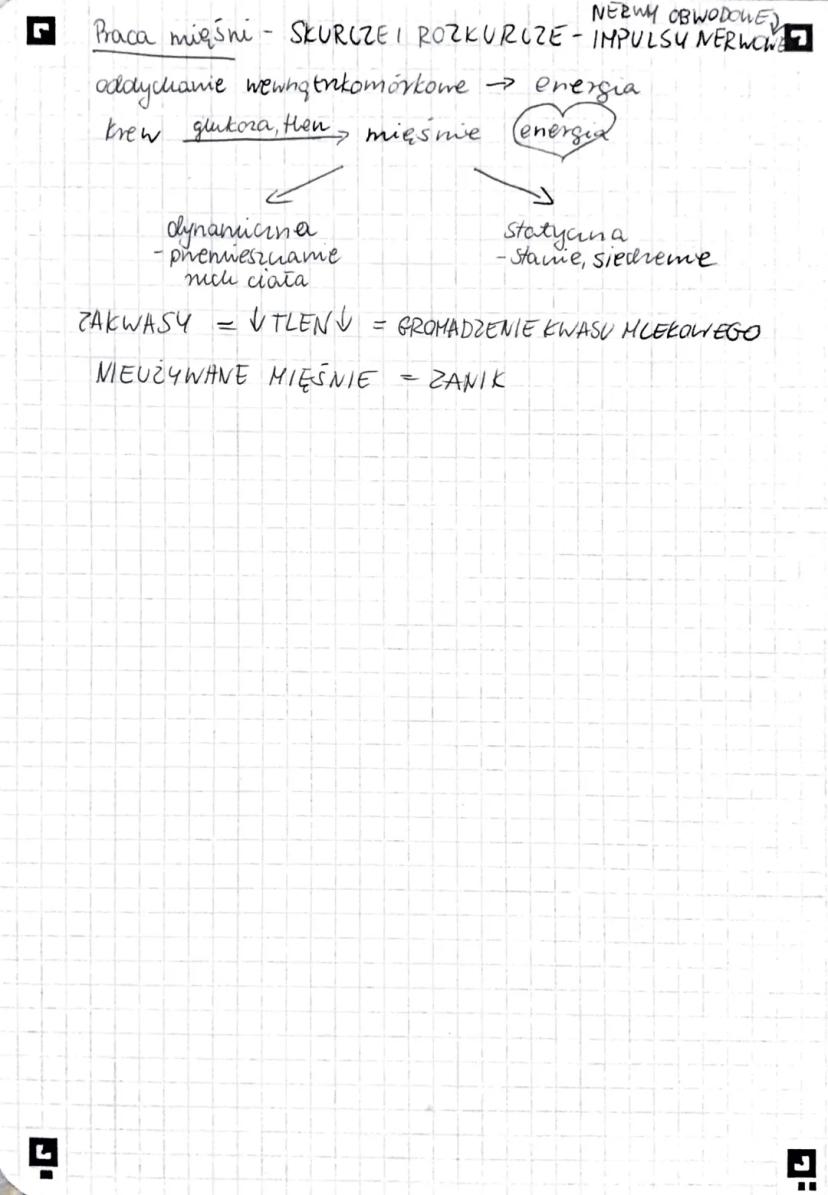 NERWY OBWODOWE
Praca mięśni - SKURCZE I ROZKURCZE - IMPULSY NERWOWE
oddychanie wewnątrzkomórkowe → energia
krew glukoza, tlen → mięśnie energia
dynamiczna
- przemieszczanie
ruch ciała
statyczna
- stanie, siedzenie
ZAKWASY = ↓ TLEN ↓ = GROMADZENIE KWASU MLEKOWEGO
NIEUŻYWANE MIĘŚNIE = ZANIK